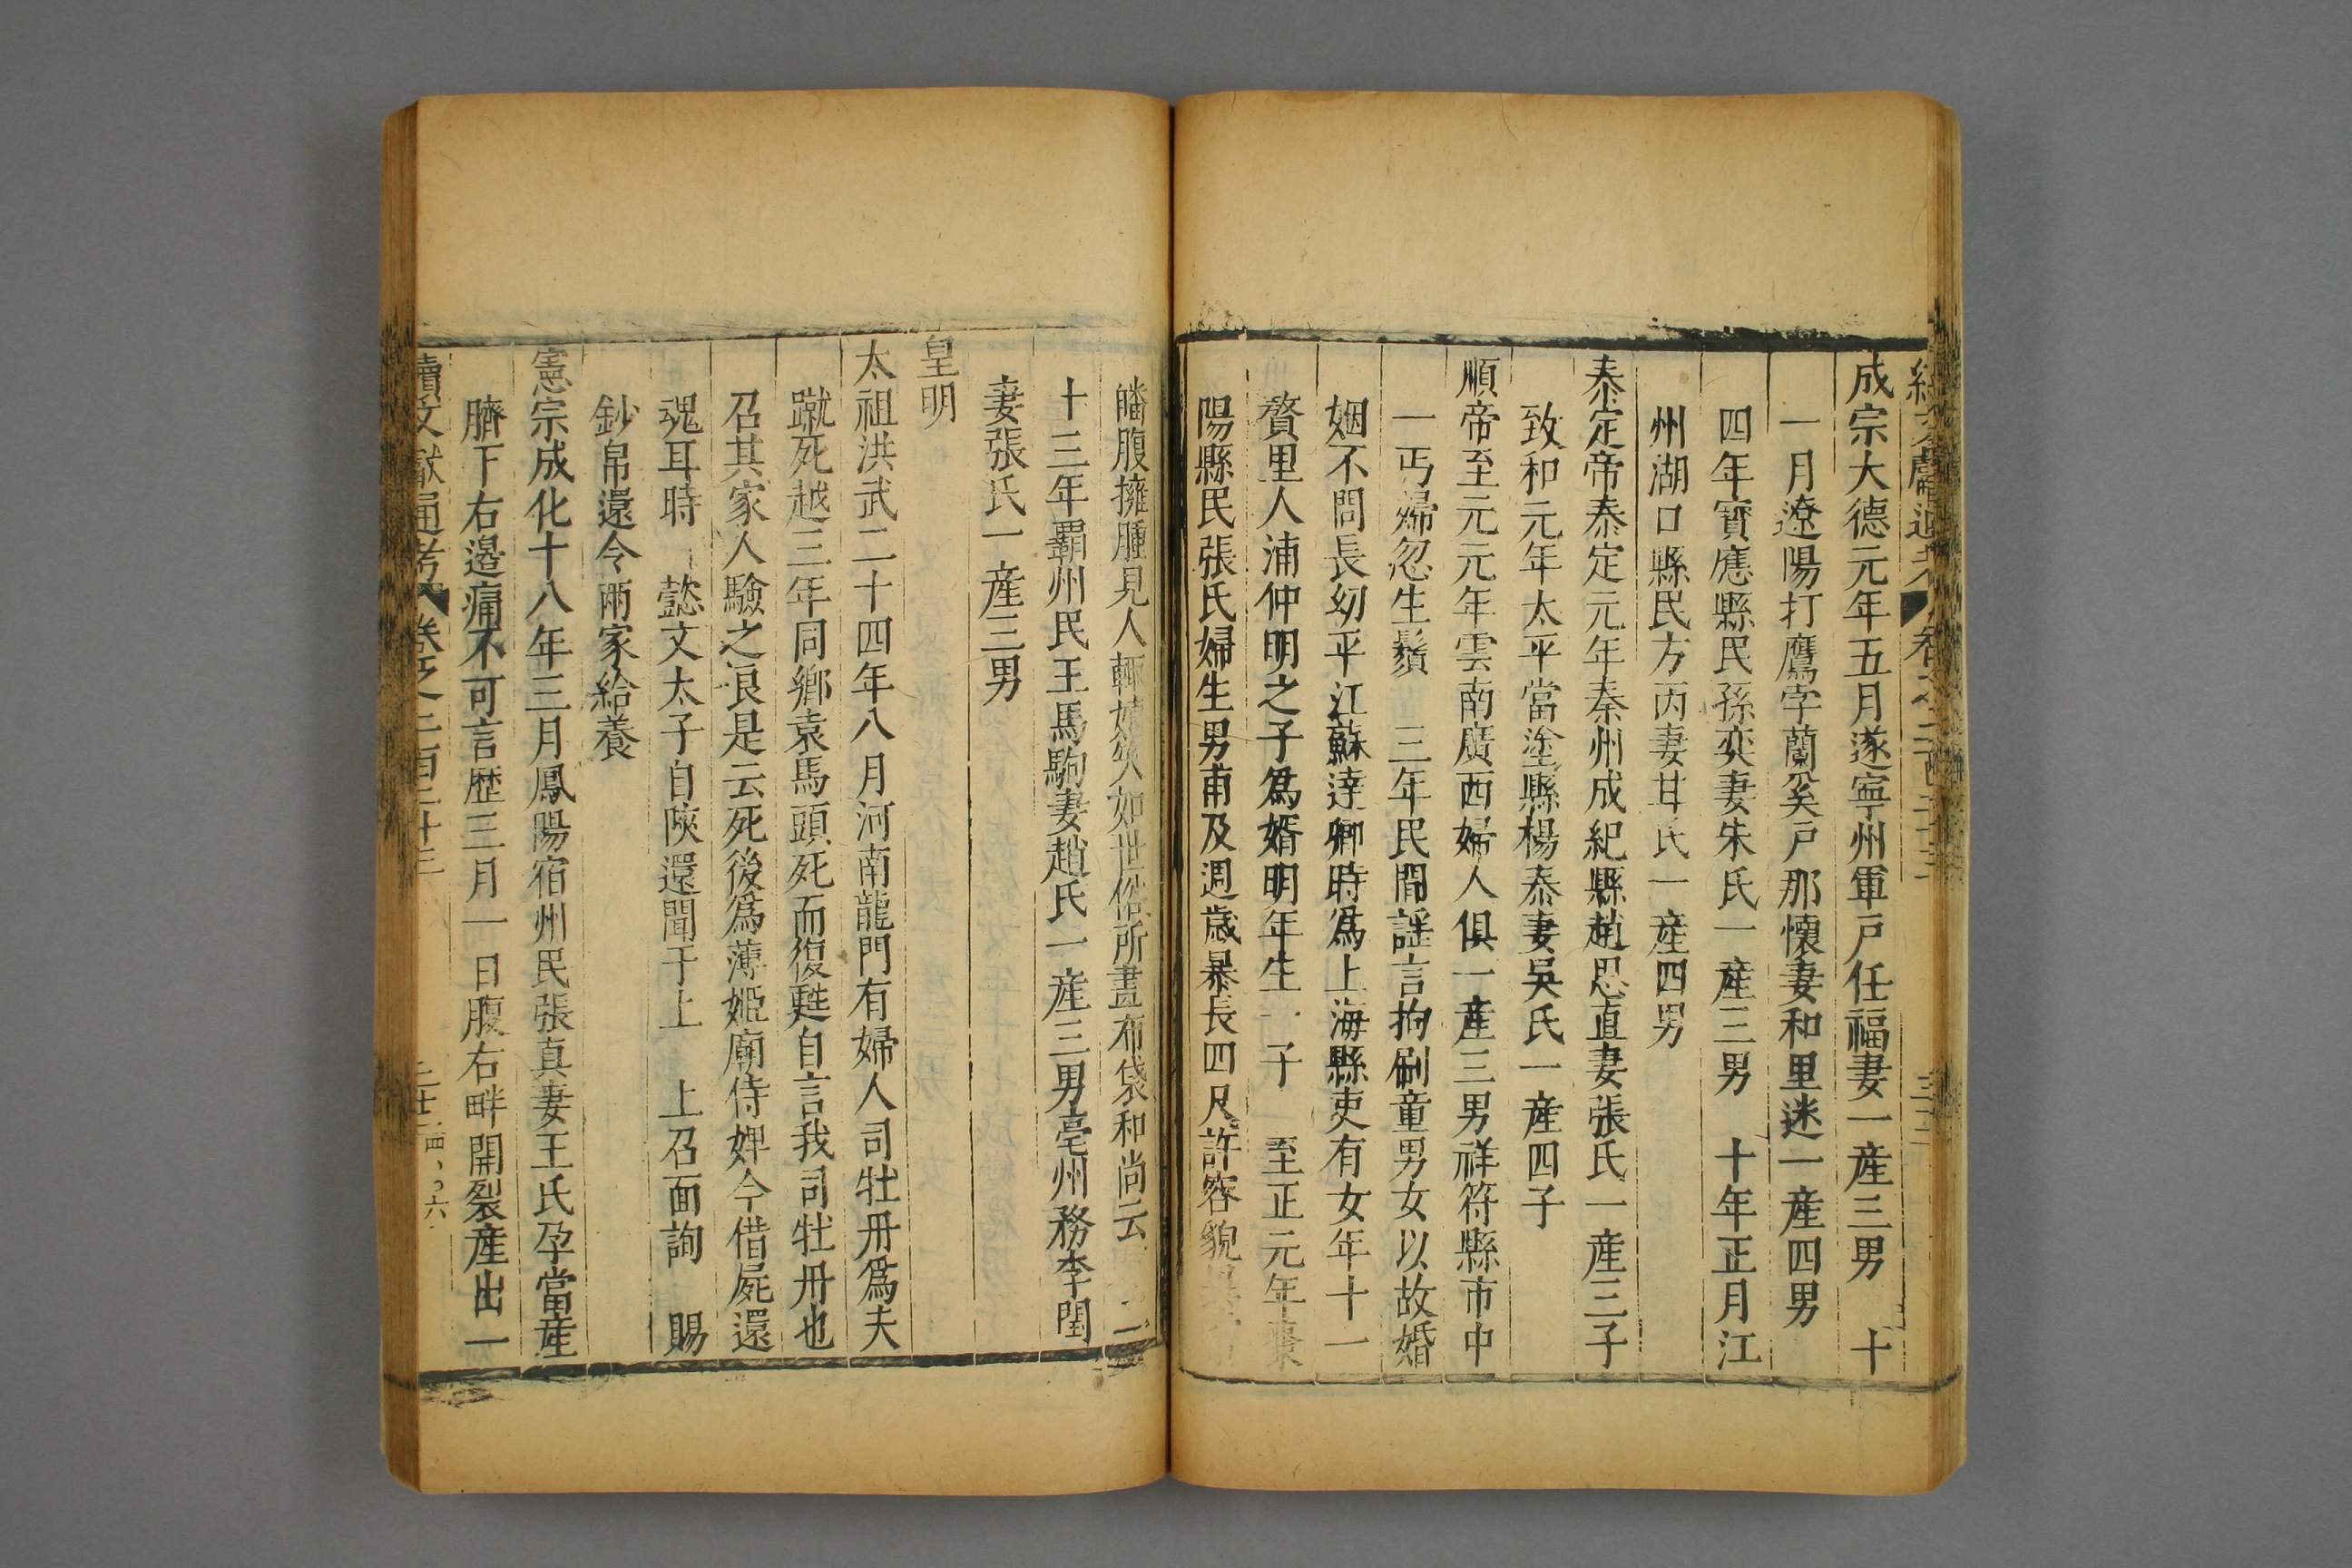 成宗大德元年五月遂寧州軍戸任福妻一產三男　十
一月遼陽打鷹孛蘭奚戸那懷妻和里迷一產四男
四年寶應縣民孫奕妻朱氏一產三男　十年正月江
州湖口縣民方丙妻甘氏一產四男
泰定帝泰定元年秦州成紀縣趙思直妻張氏一產三子
致和元年太平當塗縣楊泰妻吳氏一產四子
順帝至元元年雲南廣西婦人俱一產三男祥符縣市中
一丐婦忽生鬚　三年民間謡言拘刷童男女以故婚
姻不問長㓜平江蘇達卿時爲上海縣吏有女年十一
贅里人浦仲明之子爲婿明年生一子　至正元年棗
陽縣民張氏婦生男甫及週歲暴長四尺許容貌
皤腹擁腫見人輒嬉笑如世俗所畫布袋和尚云　二
十三年霸州民王馬駒妻趙氏一產三男亳州務李閏
妻張氏一產三男
皇明
太祖洪武二十四年八月河南龍門有婦人司牡丹爲夫
蹴死越三年同鄉袁馬頭死而復甦自言我司牡丹也
召其家人驗之良是云死後爲薄姬廟侍婢今借屍還
魂耳時　懿文太子自陝還聞于上　上召面詢　賜
鈔帛還令兩家給養
憲宗成化十八年三月鳳陽宿州民張真妻王氏孕當產
臍下右邉痛不可言歴三月一日腹右畔開裂產出一
續文獻通考　卷之二百二十三